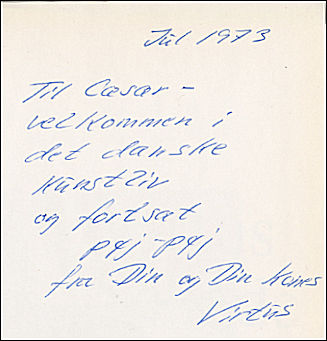 Jul 1973
Til Cæsar -
velkommen i
det danske
kunstliv
og fortsat
pøj-pøj
fra Din og Din Kones
Virtus